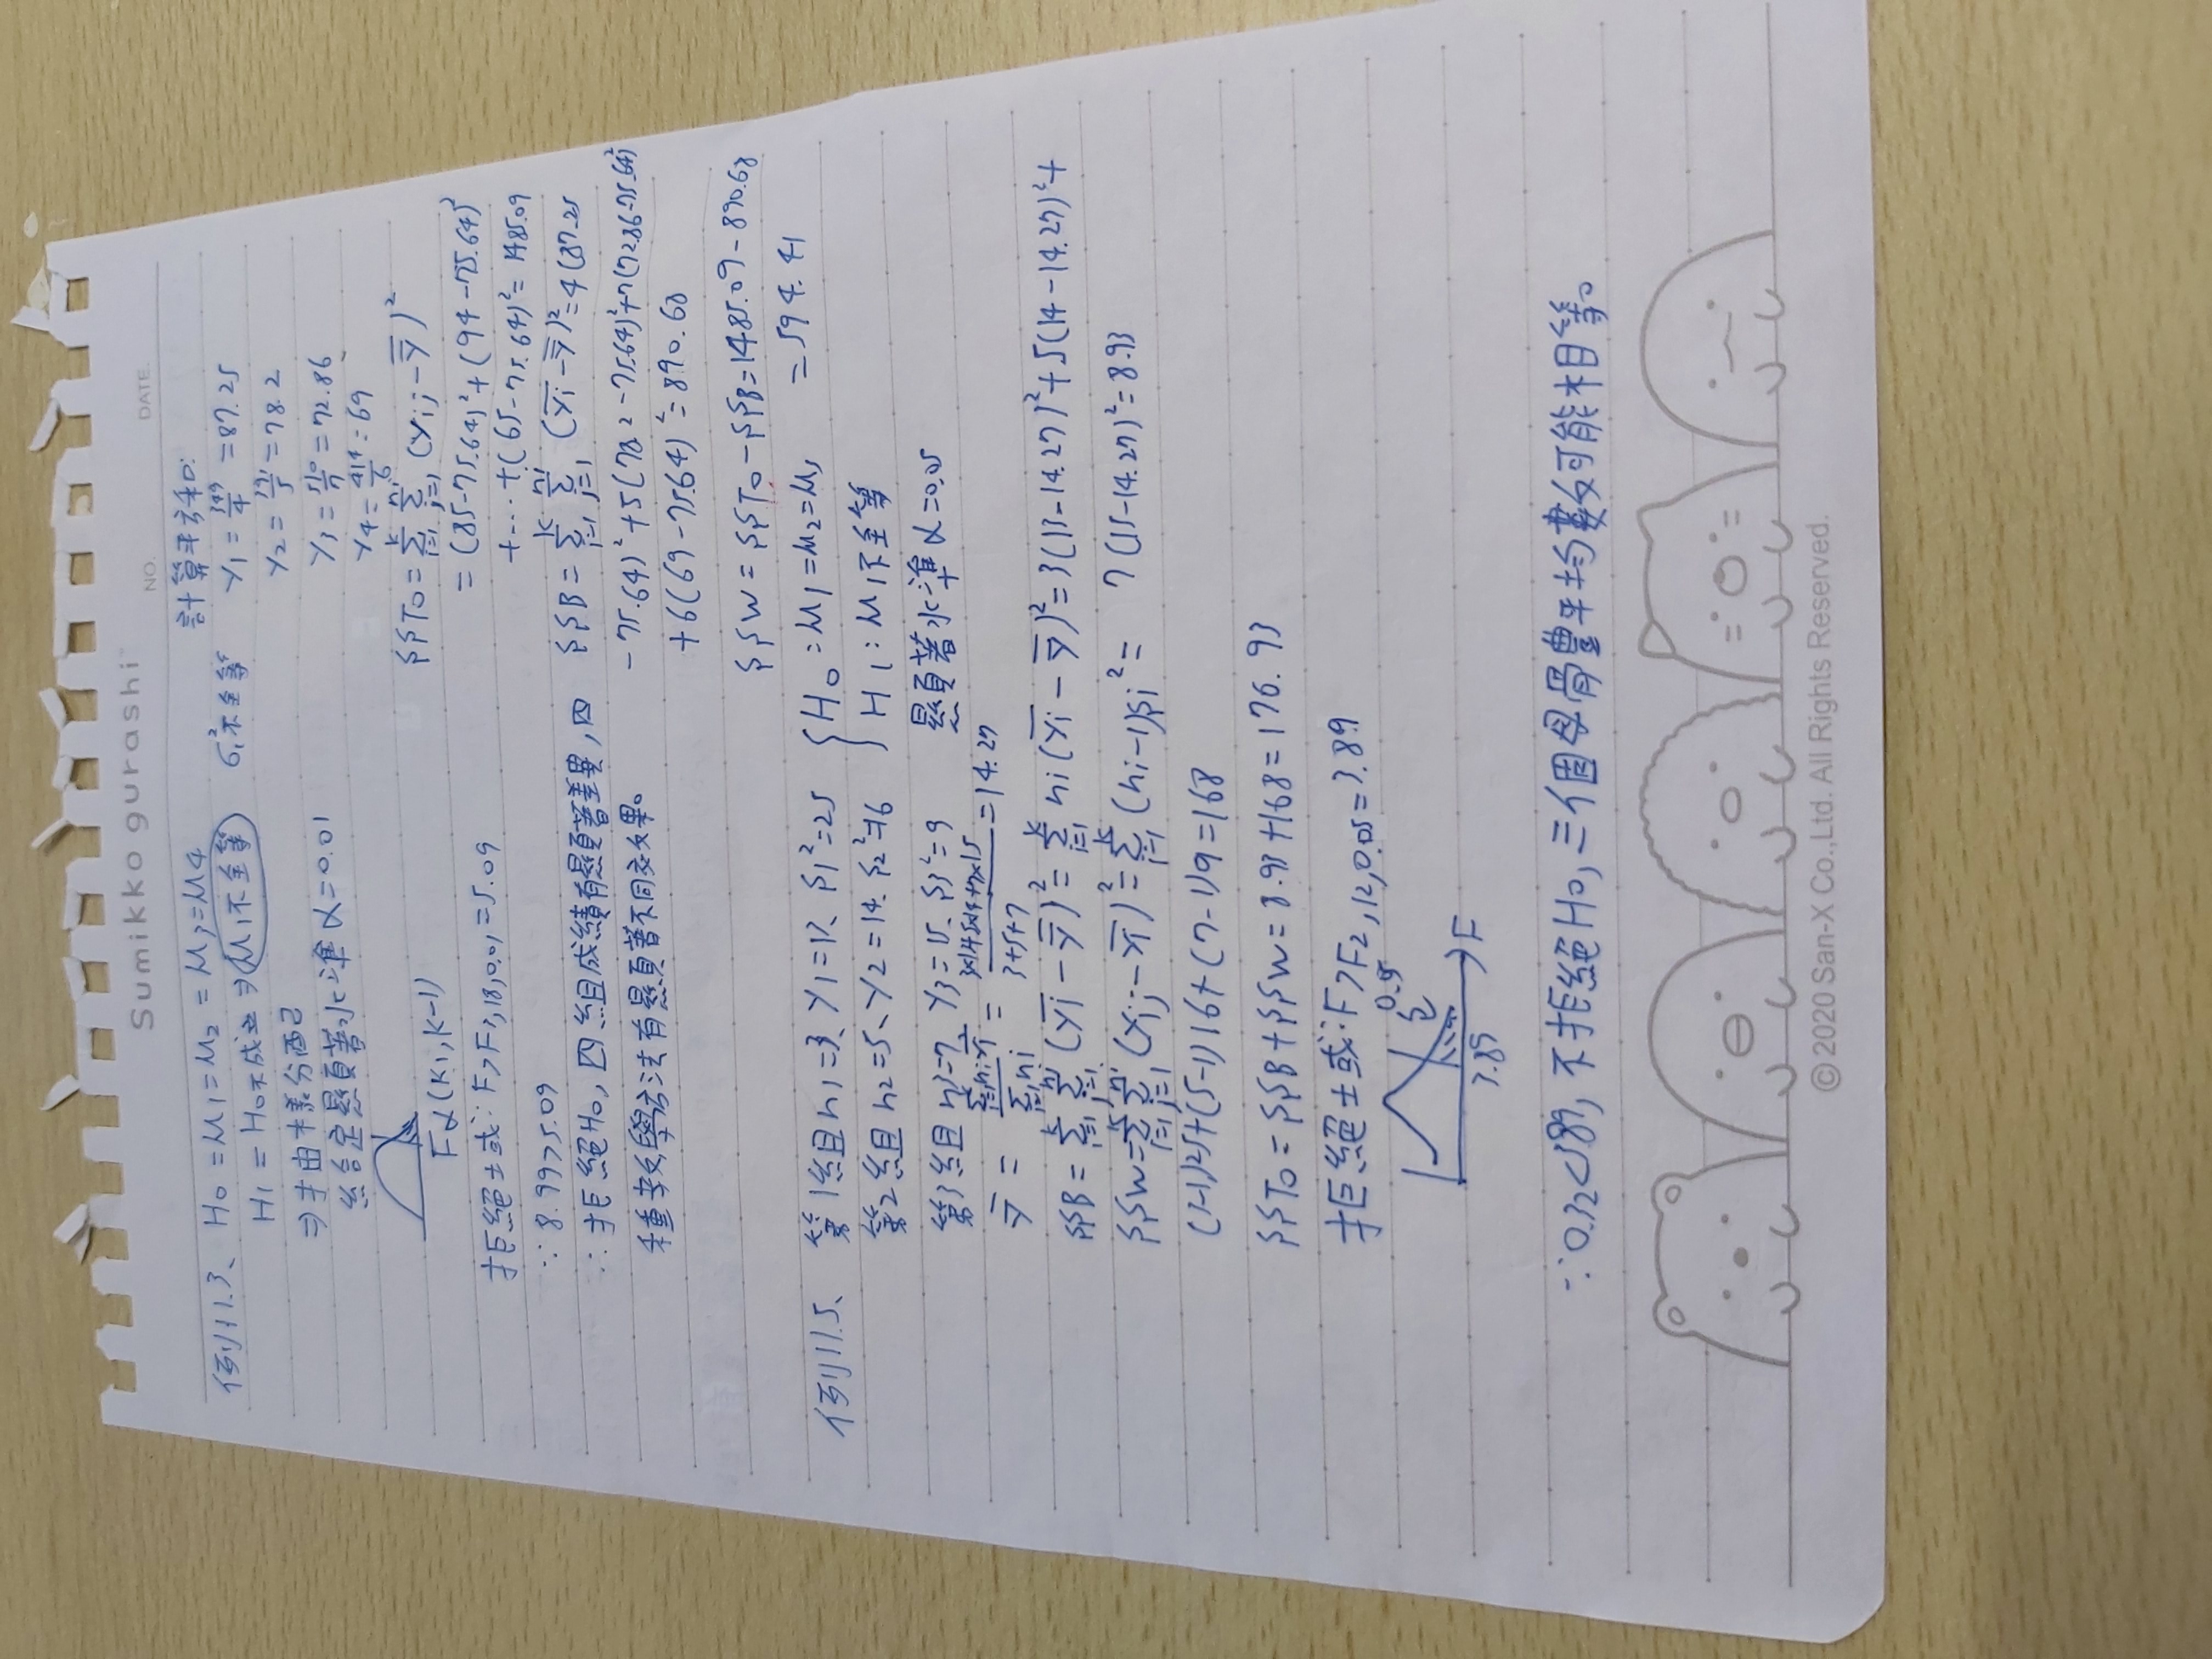 Sumikko gurashi
NO. DATE.
例11.3、 H0 = μ1 = μ2 = μ3 = μ4
H1 = H0不成立 ⇒ μ1不全等 σ1²不全等
⇒抽樣分配
給定顯著水準 α=0.01
Fα(K1, K-1)
拒絕域: F>F3,18,0.01=5.09
∵ 8.99>5.09
∴ 拒絕H0, 四組成績有顯著差異, 四
種教學方法有顯著不同效果。
計算平方和:
Y1 = 349/4 = 87.25
Y2 = 391/5 = 78.2
Y3 = 510/7 = 72.86
Y4 = 414/6 = 69
SSTo = Σ(i=1,k) Σ(j=1,ni) (yij - y̿)²
= (85-75.64)² + (94-75.64)²
+…+(65-75.64)² = 1485.09
SSB = Σ(i=1,k) Σ(j=1,ni) (y̅i - y̿)² = 4(87.25
-75.64)² + 5(78.2-75.64)² + 7(72.86-75.64)²
+6(69-75.64)² = 890.68
SSW = SSTo - SSB = 1485.09 - 890.68
= 594.41
例11.5、 第1組 n1=3、Y1=13、S1²=25
第2組 n2=5、Y2=14、S2²=16
第3組 n3=7、Y3=15、S3²=9
{ H0 : μ1=μ2=μ3
H1 : μ1不全等
顯著水準 α=0.05
y̿ = Σni y̅i / Σni = / 3+5+7 = 14.27
SSB = Σ(i=1,k) Σ(j=1,ni) (y̅i - y̿)² = Σ(i=1,k) ni (y̅i - y̿)² = 3(13-14.27)² + 5(14-14.27)² +
7(15-14.27)² = 8.93
SSW = Σ(i=1,k) Σ(j=1,ni) (yij - y̅i)² = Σ(i=1,k) (ni-1)Si² =
(3-1)25+(5-1)16+(7-1)9=168
SSTo = SSB + SSW = 8.93 + 168 = 176.93
拒絕域: F>F2,12,0.05=3.89
3.89 F
∵ 0.32<3.89, 不拒絕H0, 三個母體平均數可能相等。
© 2020 San-X Co.,Ltd. All Rights Reserved.